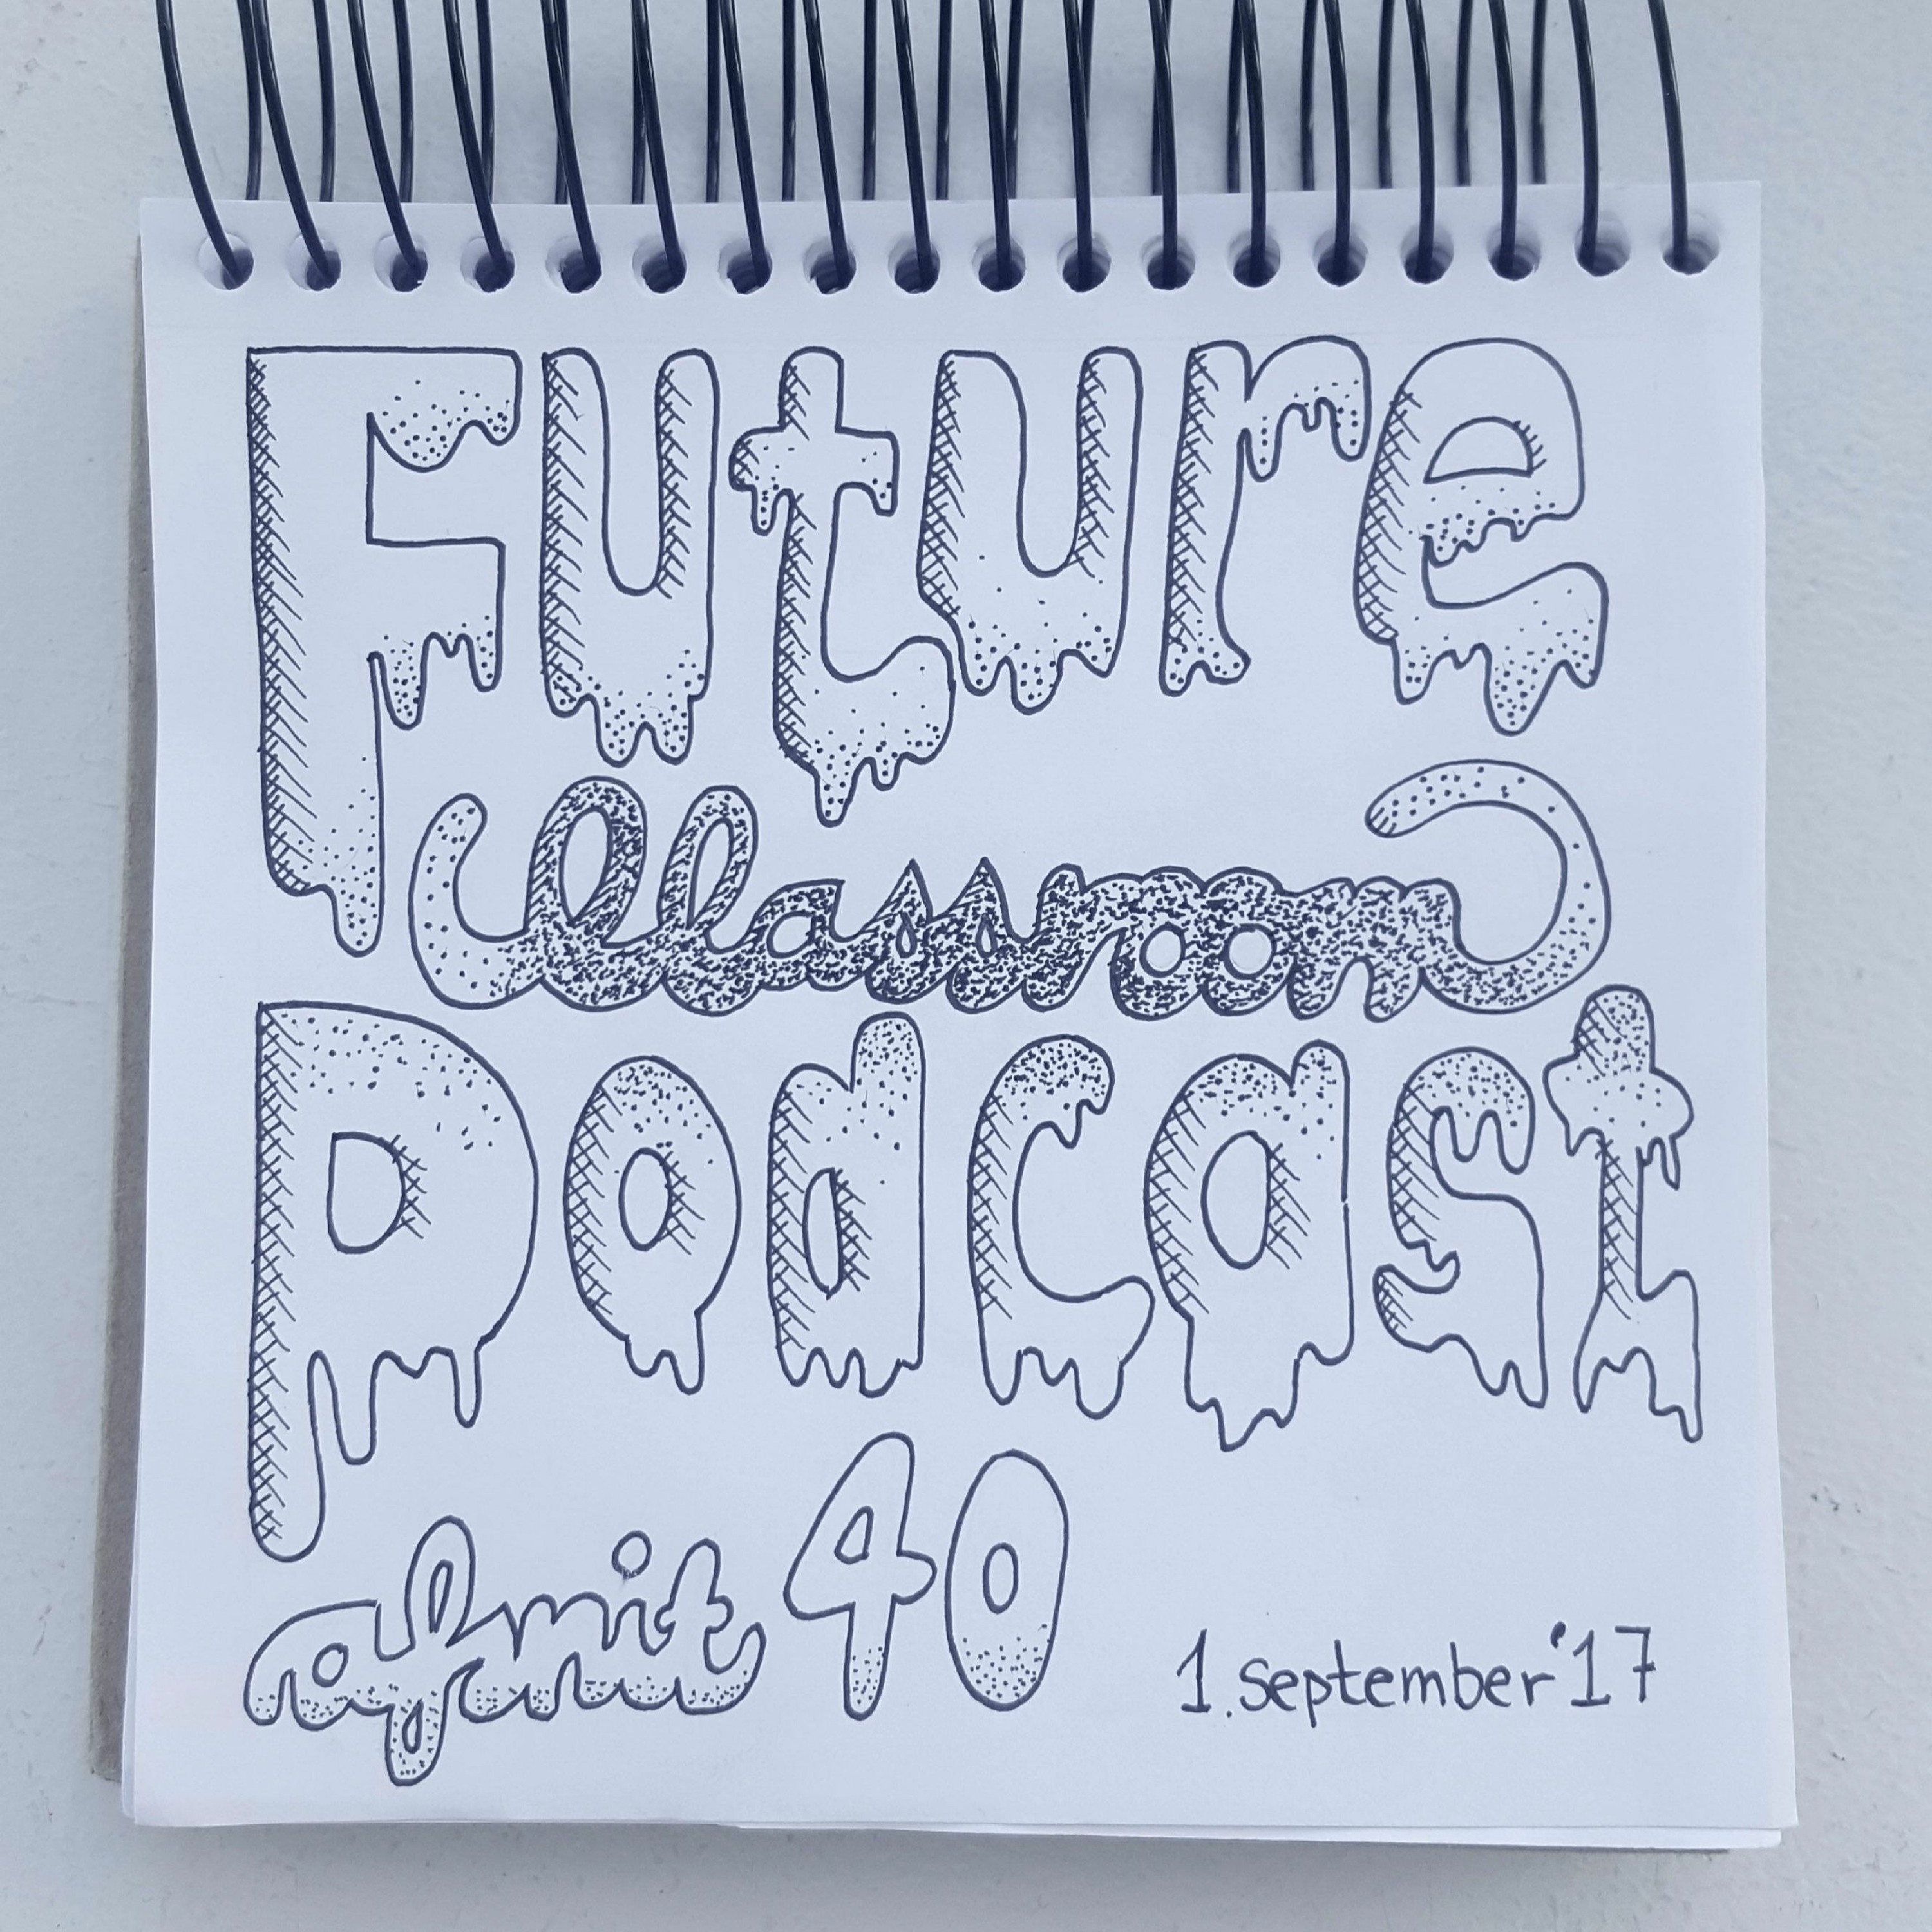 Future
Classroom
Podcast
afsnit 40
1. september '17